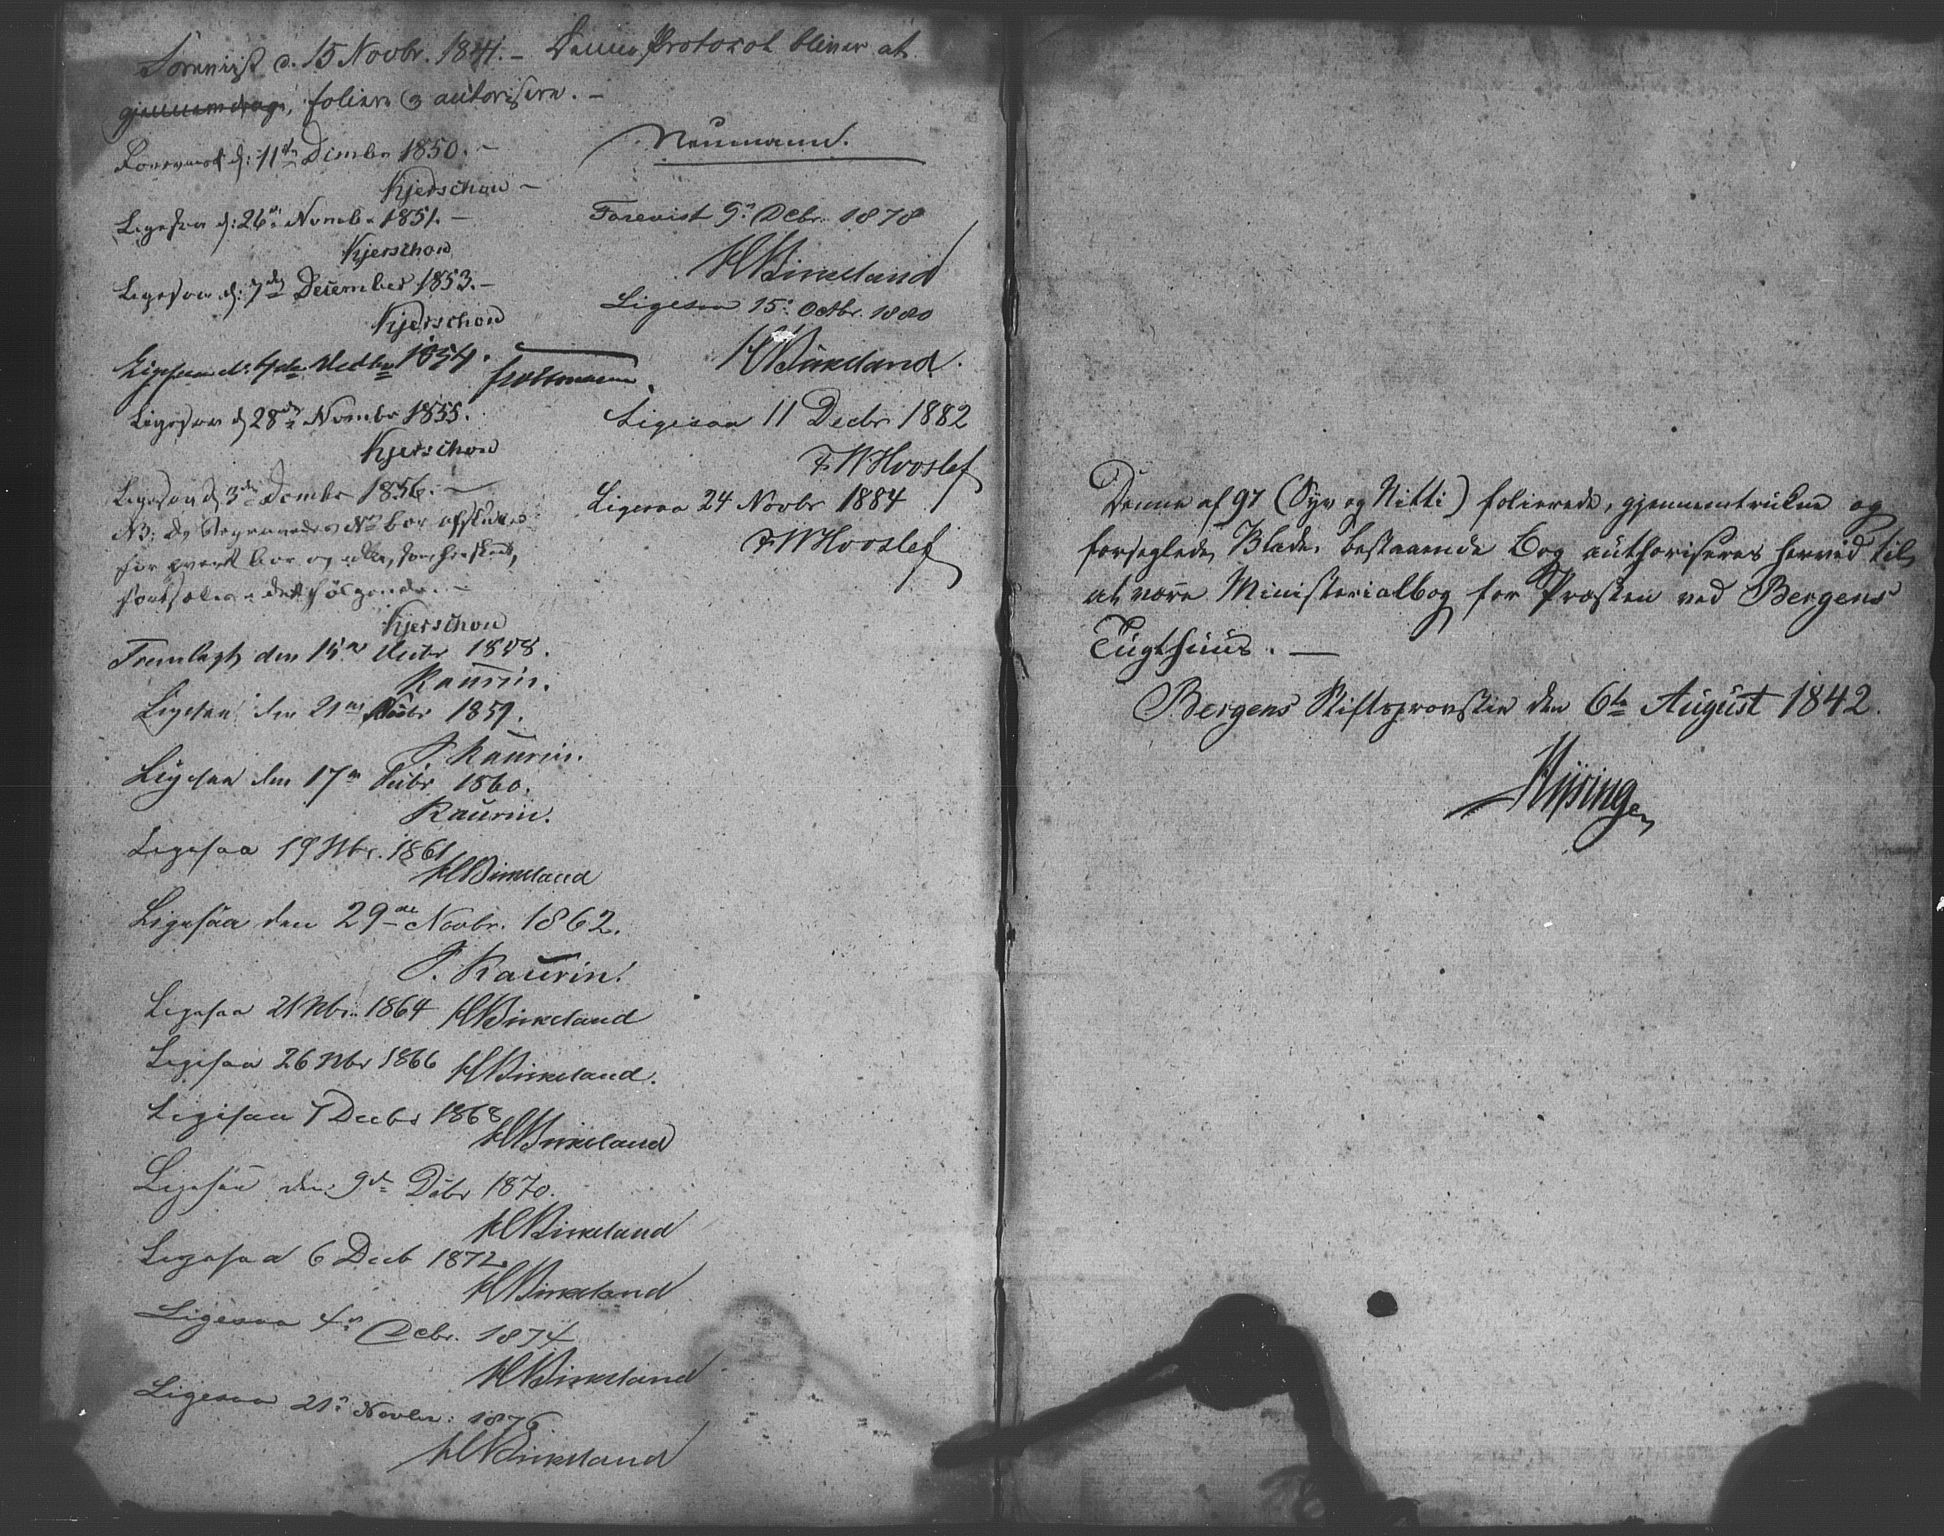 Forevist d. 15 Novbr. 1841. – Denne Protokol bliver at
gjennemdrage, foliere og autorisere. –
Neumann.
d: 11te Decembr 1850. –
Kjerschow –
Ligesaa d: 26de Novembr 1851. –
Kjerschow
Ligesaa d: 7de December 1853. –
Kjerschow
Ligesaa d: 4de 1854.
Ligesaa d 28de Novembr 1855.
Kjerschow
Ligesaa d 3de Decembr 1856. –
NB: De bør afsluttes
for hvert Aar og ikke, som her skeet,
fortsættes i det følgende. –
Kjerschow
Fremlagt den 15de 1858.
Kaurin.
Ligesaa den 21de 1859.
J. Kaurin.
Ligesaa den 17de 1860.
Kaurin.
Ligesaa 19 Nbr. 1861
H Birkeland
Ligesaa den 29de Novbr. 1862.
J. Kaurin.
Ligesaa 21 Nbr. 1864 H Birkeland
Ligesaa 26 Nbr 1866 H Birkeland.
Ligesaa 7 Decbr 1868
H Birkeland
Ligesaa den 9de Decbr 1870.
H Birkeland
Ligesaa 6 Decb 1872
H Birkeland
Ligesaa 4de Decbr. 1874
H Birkeland
Ligesaa 21de Novbr: 1876
H Birkeland
Forevist 9de Decbr. 1878
H Birkeland
Ligesaa 15de Octbr. 1880
H Birkeland.
Ligesaa 11 Decbr 1882
F W Hvoslef
Ligesaa 24 Novbr 1884
F W Hvoslef
Denne af 97 (Syv og Nitti) folierede, gjennemtrukne og
forseglede Blade, bestaaende Bog authoriseres herved til
at være Ministerialbog for Præsten ved Bergens
Tugthuus. —
Bergens Stiftsprovstie den 6te August 1842.